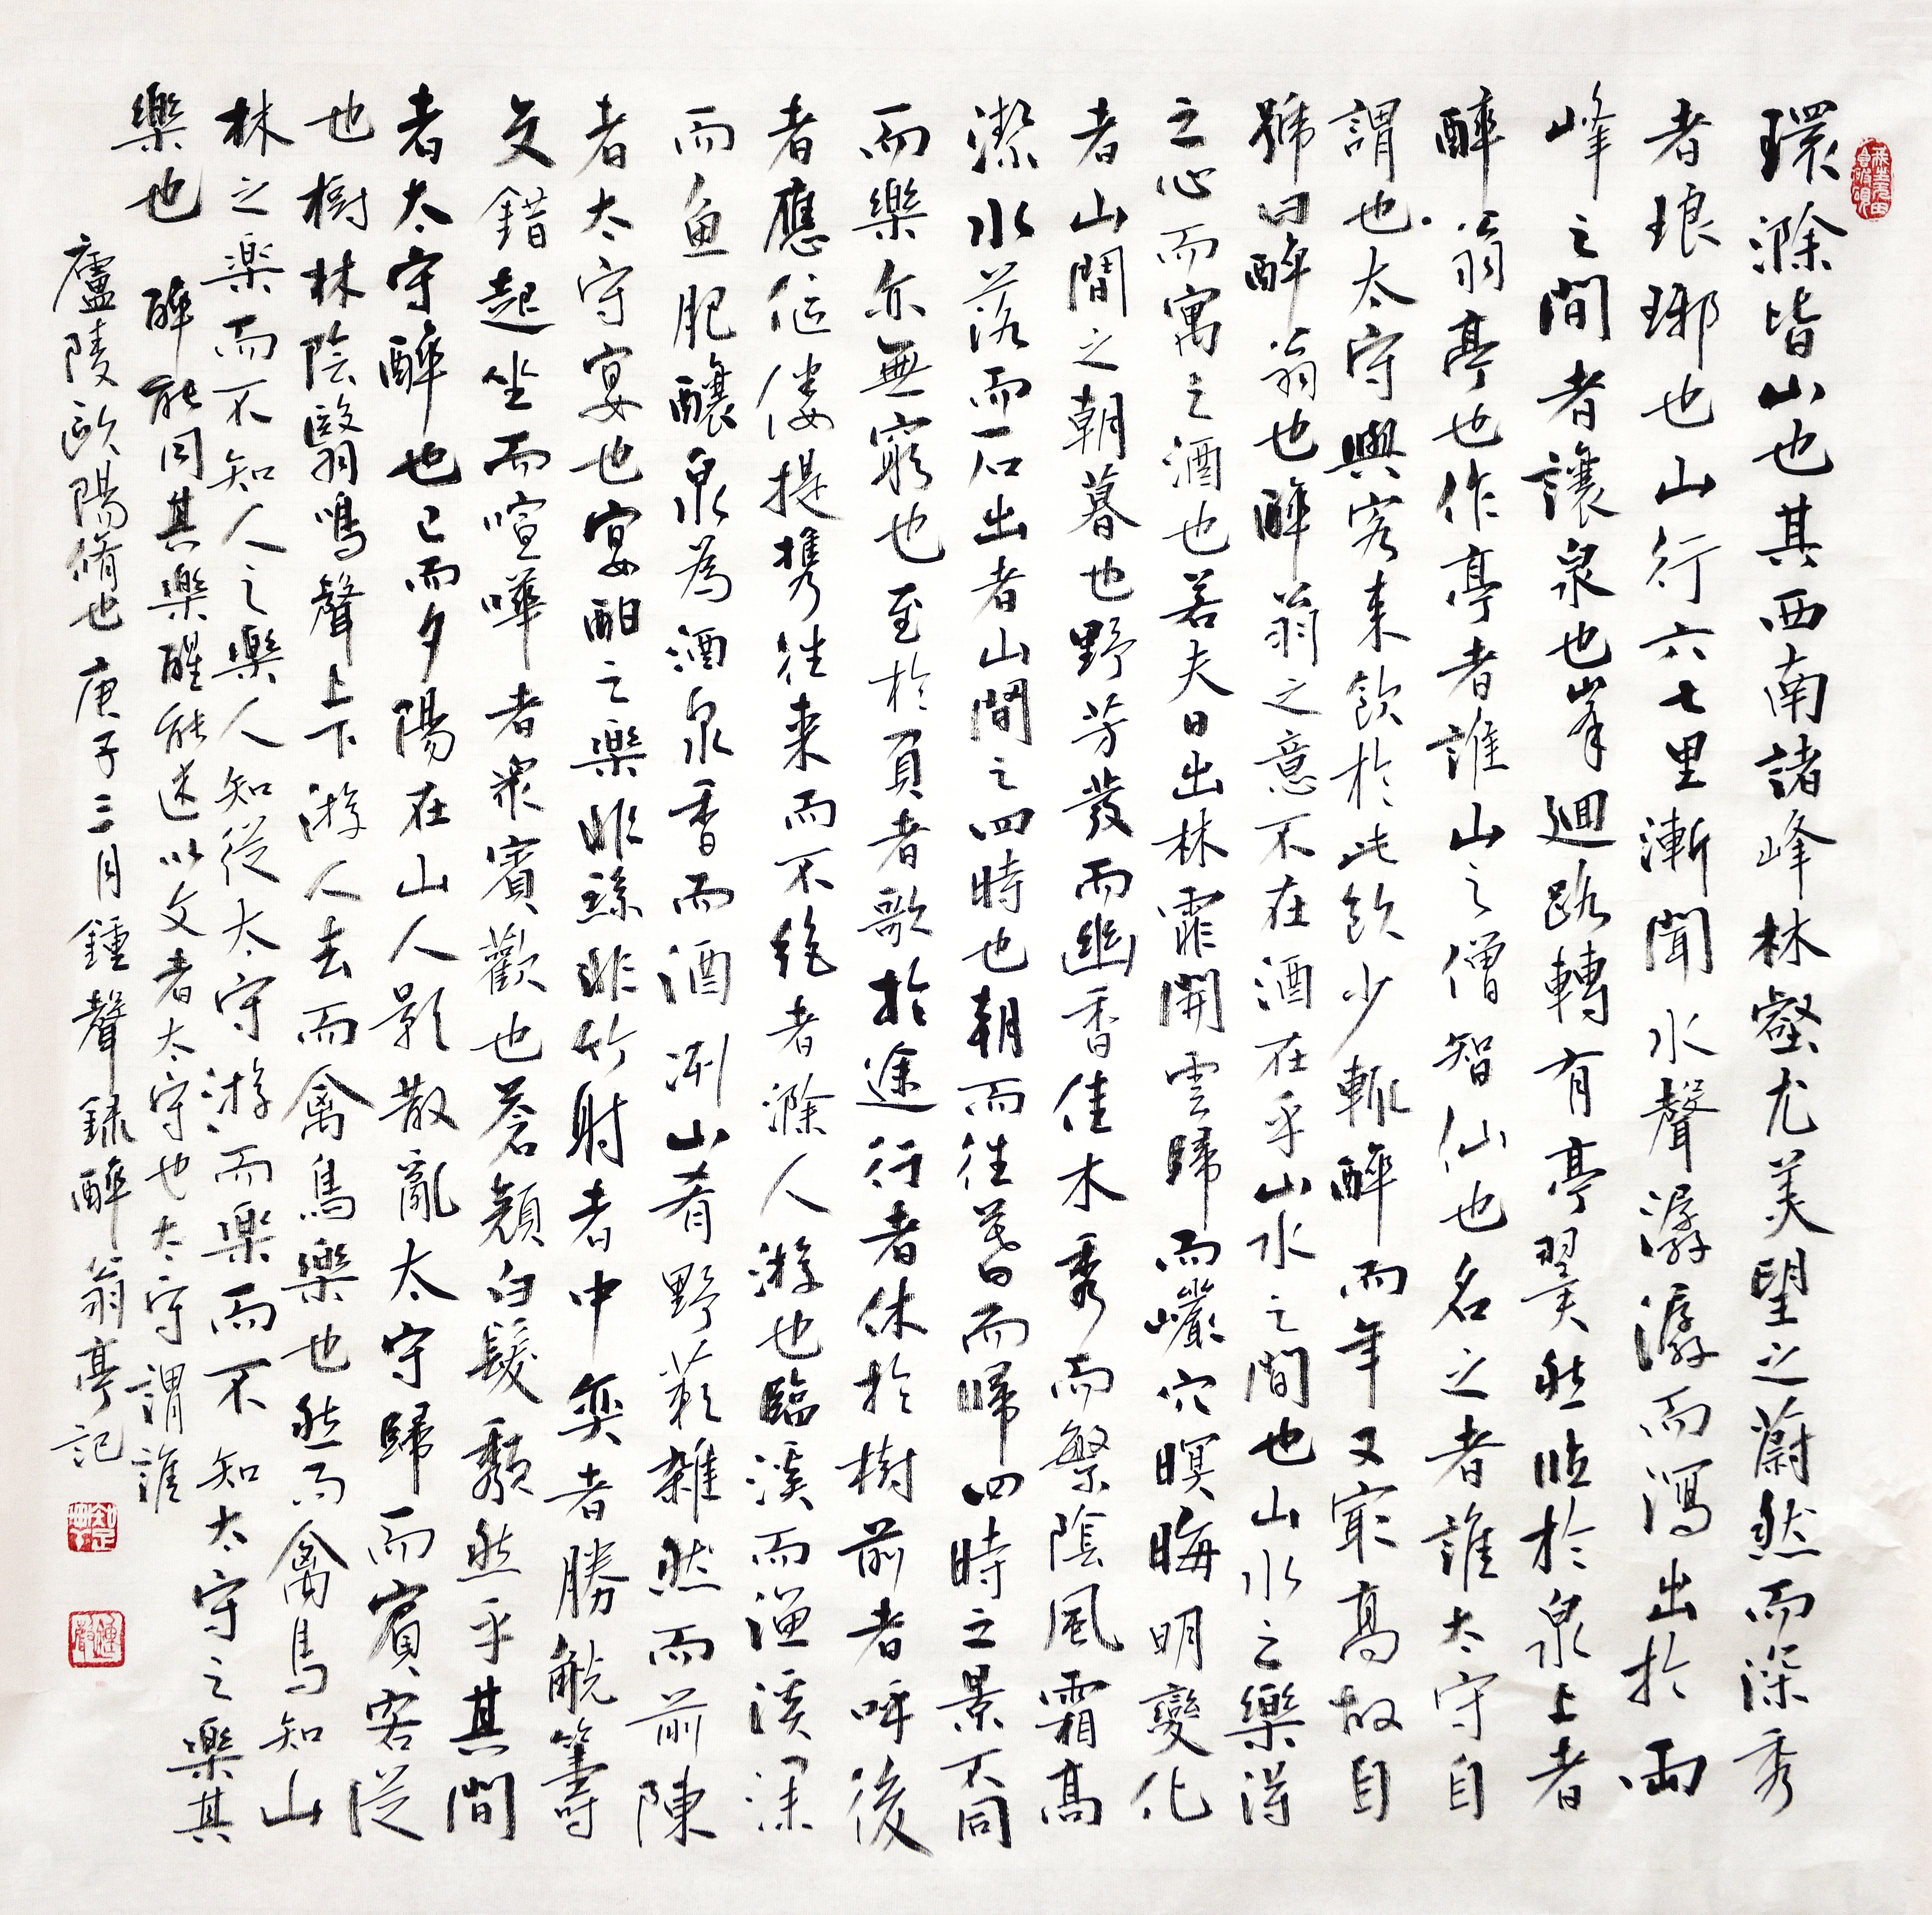 環滁皆山也其西南諸峰林壑尤美望之蔚然而深秀
者琅琊也山行六七里漸聞水聲潺潺而瀉出於兩
峰之間者讓泉也峯迴路轉有亭翼然臨於泉上者
醉翁亭也作亭者誰山之僧智仙也名之者誰太守自
謂也太守與客来飲於此飲少輒醉而年又最高故自
號曰醉翁也醉翁之意不在酒在乎山水之間也山水之樂得
之心而寓之酒也若夫日出林霏開雲歸而巖穴暝晦明變化
者山間之朝暮也野芳發而幽香佳木秀而繁陰風霜高
潔水落而石出者山間之四時也朝而往暮而歸四時之景不同
而樂亦無窮也至於負者歌於途行者休於樹前者呼後
者應傴僂提携往来而不絶者滁人游也臨溪而漁溪深
而魚肥釀泉為酒泉香而酒洌山肴野蔌雜然而前陳
者太守宴也宴酣之樂非絲非竹射者中奕者勝觥籌
交錯起坐而喧嘩者衆賓歡也蒼顔白髮頹然乎其間
者太守醉也已而夕陽在山人影散亂太守歸而賓客從
也樹林陰翳鳴聲上下游人去而禽鳥樂也然而禽鳥知山
林之楽而不知人之樂人知從太守游而樂而不知太守之樂其
樂也 醉能同其樂醒能述以文者太守也太守謂誰
廬陵歐陽脩也 庚子三月鍾聲録醉翁亭記
鍾聲